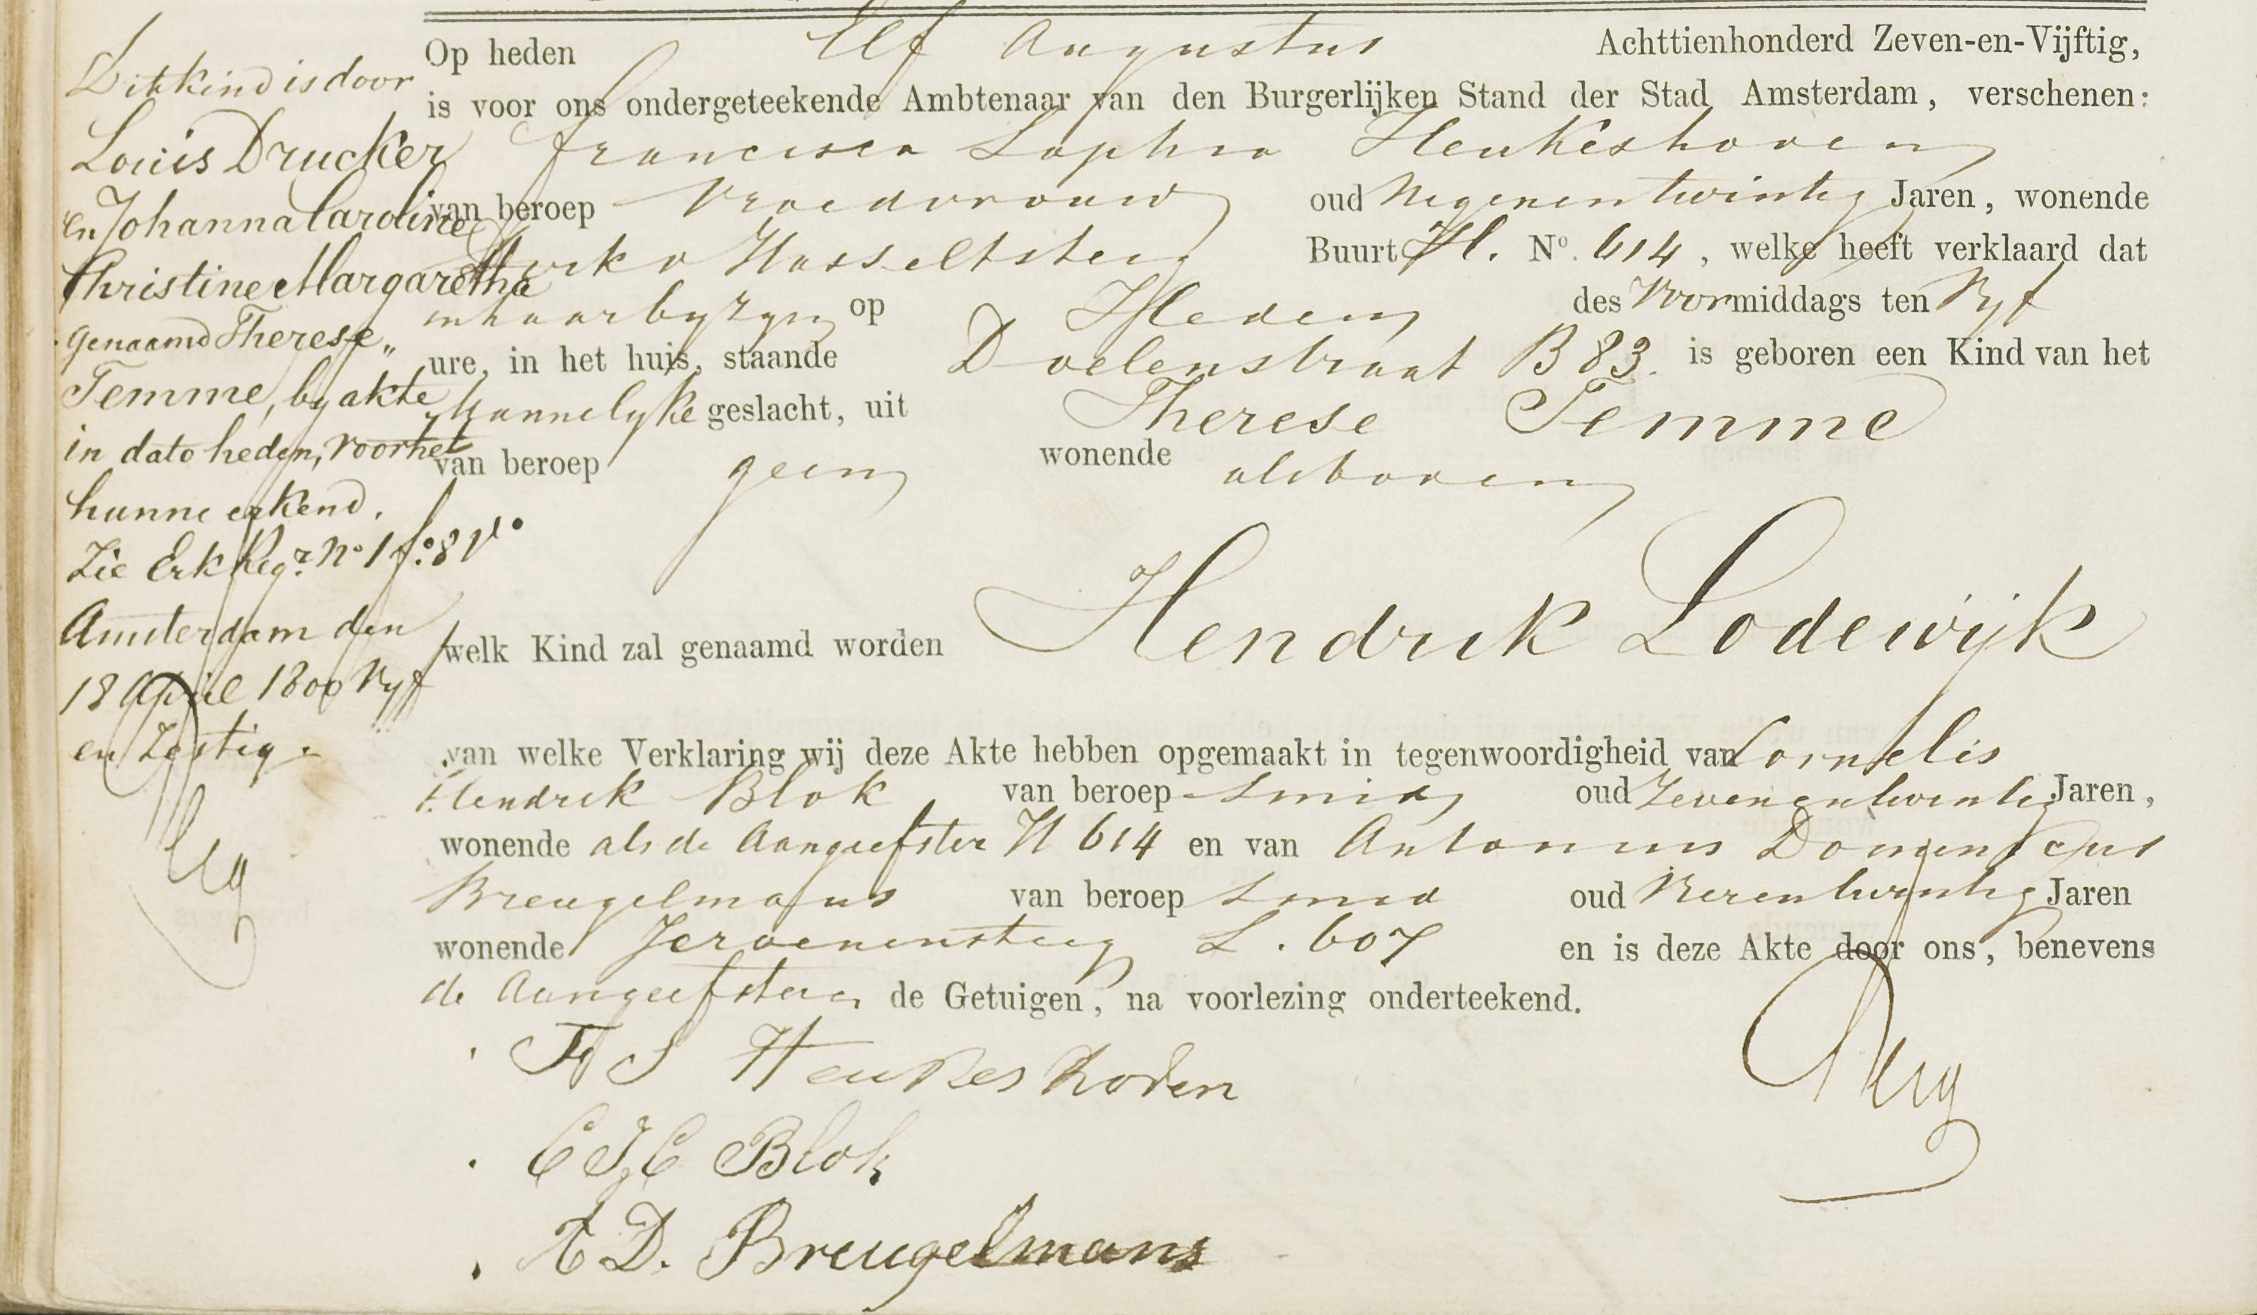 Dit kind is door
Louis Drucker
en Johanna Caroline
Christine Margaretha
genaamd Therese „
Temme, by akte
in dato heden, voor het
hunne erkend.
Zie Erk Regr. No 1 fo. 8 Vo
Amsterdam den
18 April 1800 Vyf
en Zestig.
Op heden Elf Augustus Achttienhonderd Zeven-en-Vijftig,
is voor ons ondergeteekende Ambtenaar van den Burgerlijken Stand der Stad Amsterdam, verschenen:
Francisca Sophia Heukeshoven
van beroep Vroedvrouw oud Negenentwintig Jaren, wonende
Hasseltsteeg Buurt H. No. 614, welke heeft verklaard dat
in haar byzyn op Heden des Voormiddags ten Vyf
ure, in het huis, staande Doelenstraat B 83. is geboren een Kind van het
Mannelyke geslacht, uit Therese Temme
van beroep geen wonende alsboven
welk Kind zal genaamd worden Hendrik Lodewijk
van welke Verklaring wij deze Akte hebben opgemaakt in tegenwoordigheid van Cornelis
Hendrik Blok van beroep Smid oud Zevenentwintig Jaren,
wonende als de Aangeefster H 614 en van Antonius Dominicus
Breugelmans van beroep Smid oud Vierentwintig Jaren
wonende Jeroenensteeg L. 607 en is deze Akte door ons, benevens
de Aangeefster, de Getuigen, na voorlezing onderteekend.
F S Heukeshoven
Blok
A D. Breugelmans